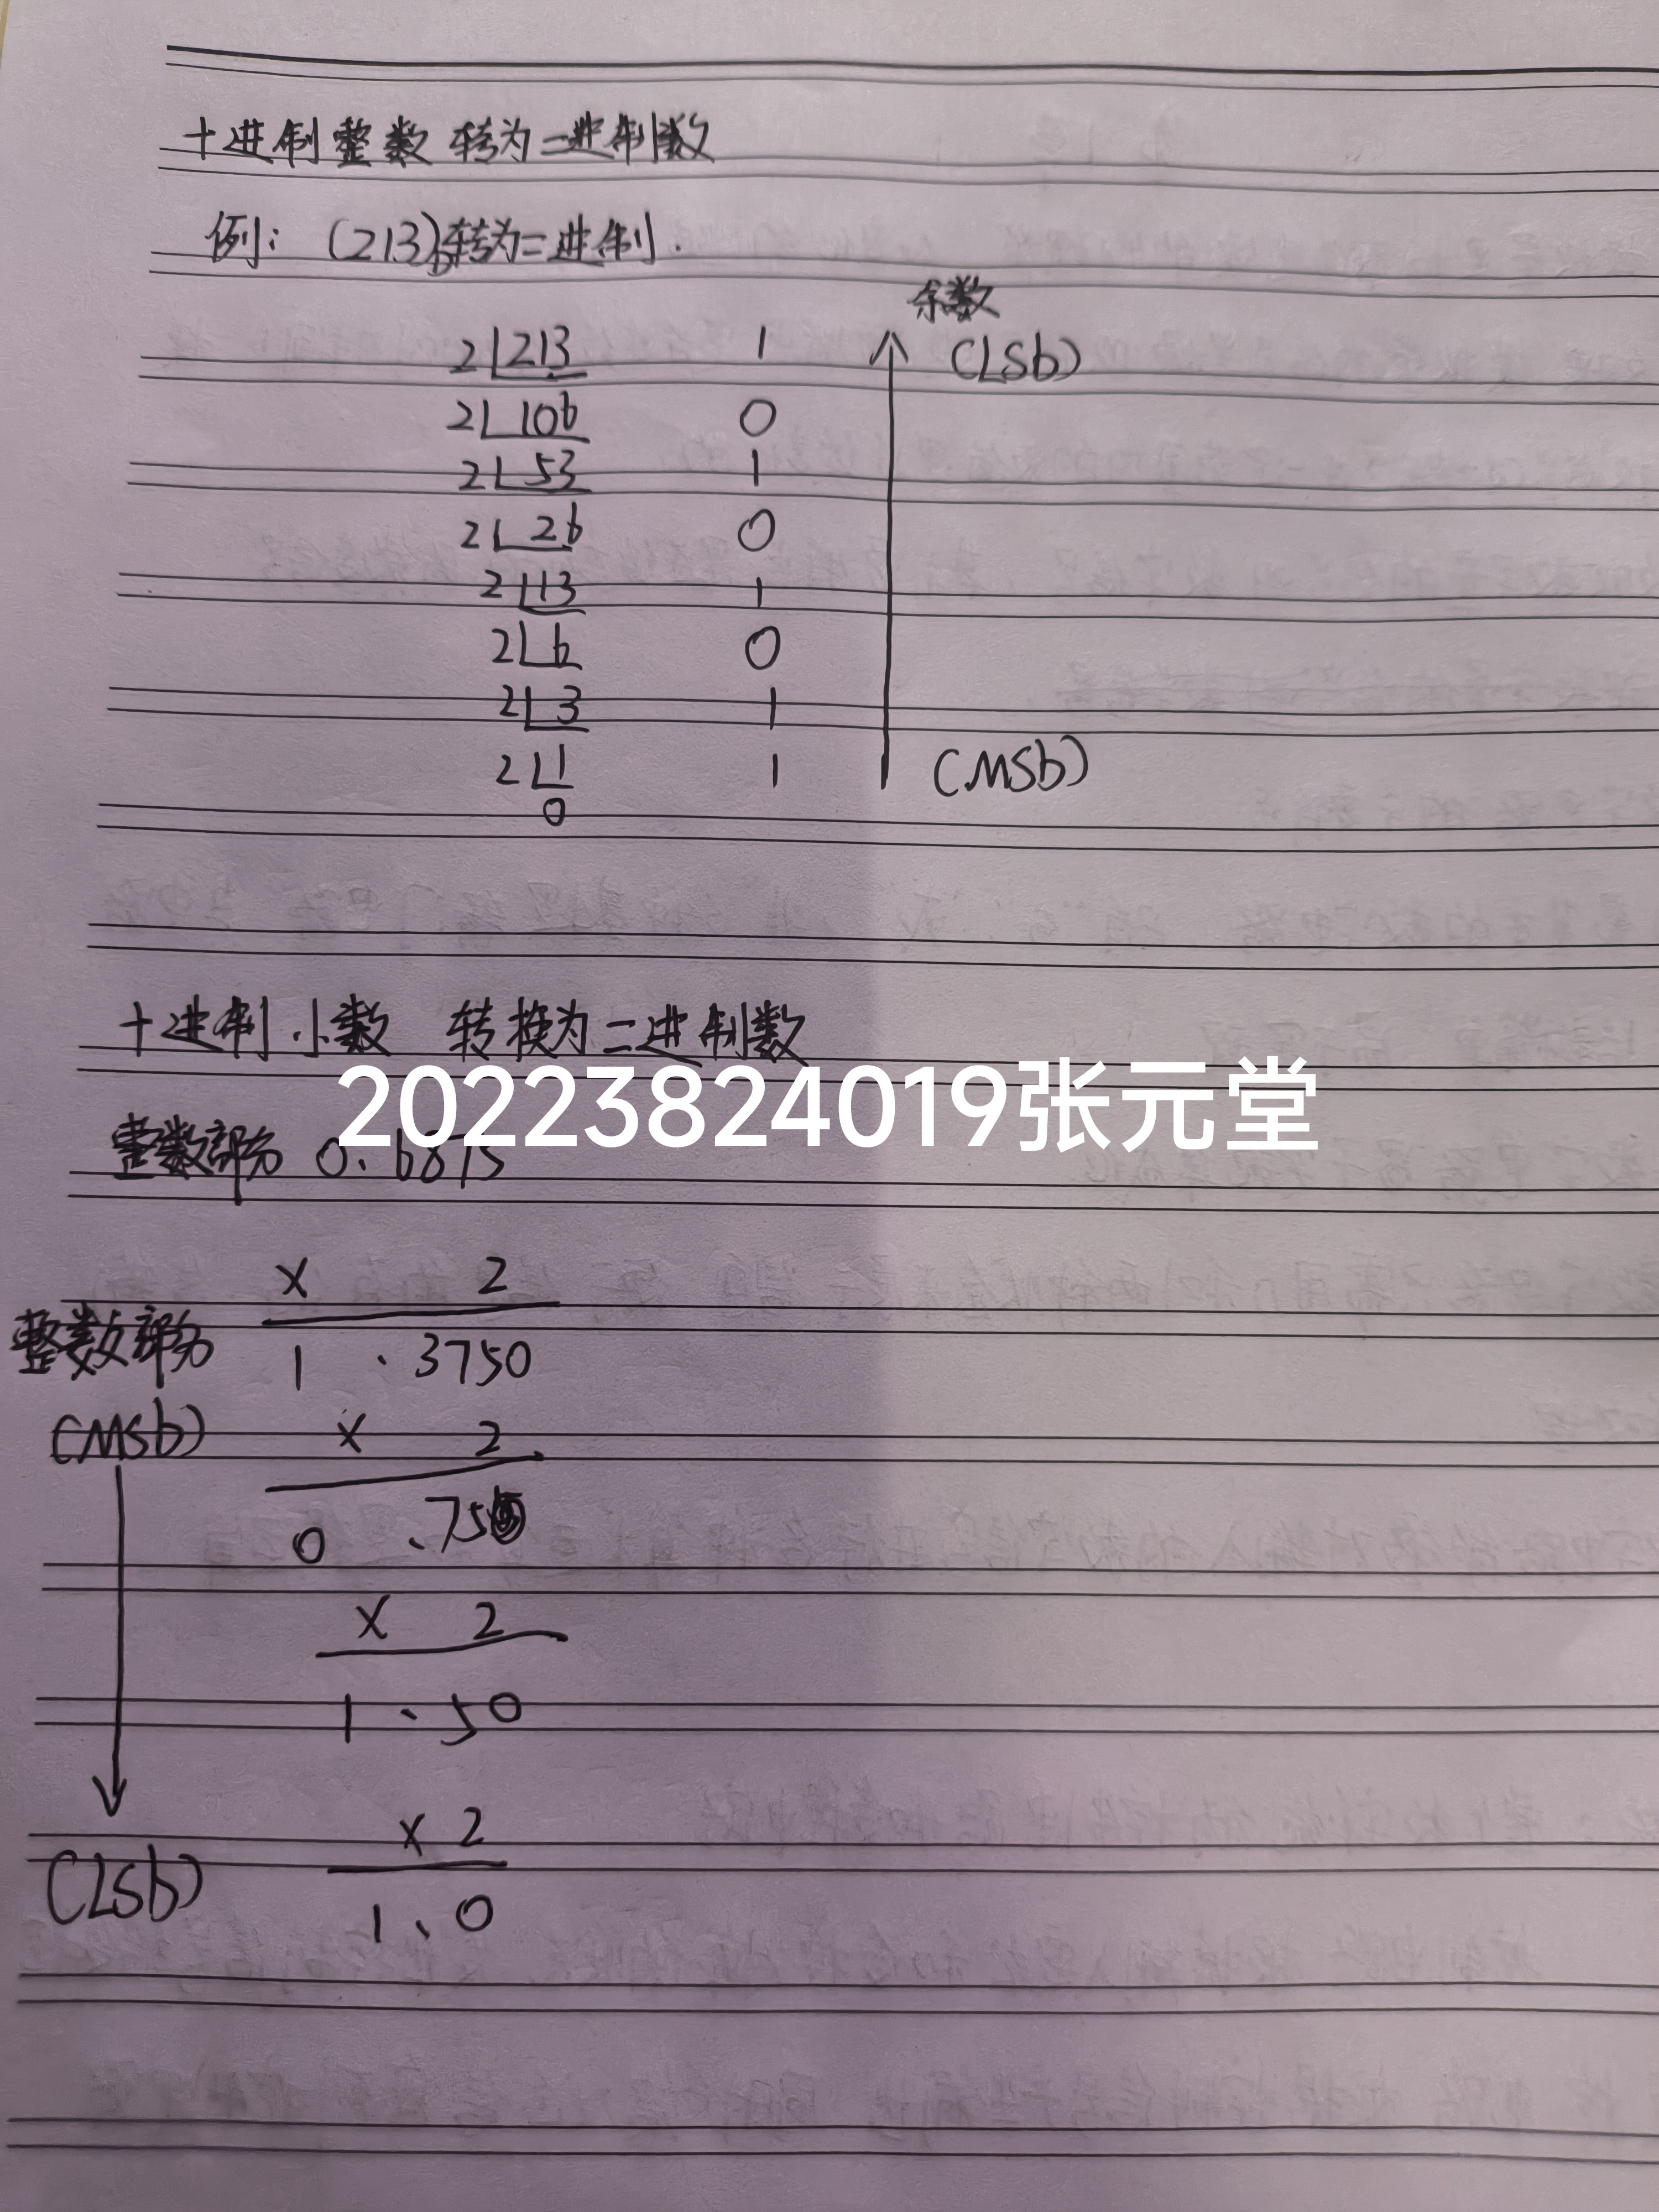 十进制整数 转为二进制数
例：(213)D转为二进制.
余数
2 213 1 (LSb)
2 106 0
2 53 1
2 26 0
2 13 1
2 6 0
2 3 1
2 1 1 (MSb)
0
十进制小数 转换为二进制数
20223824019张元堂
整数部分 0.6875
× 2
整数部分 1 .3750
(MSb) × 2
0 .750
× 2
1.50
× 2
(LSb)
1.0